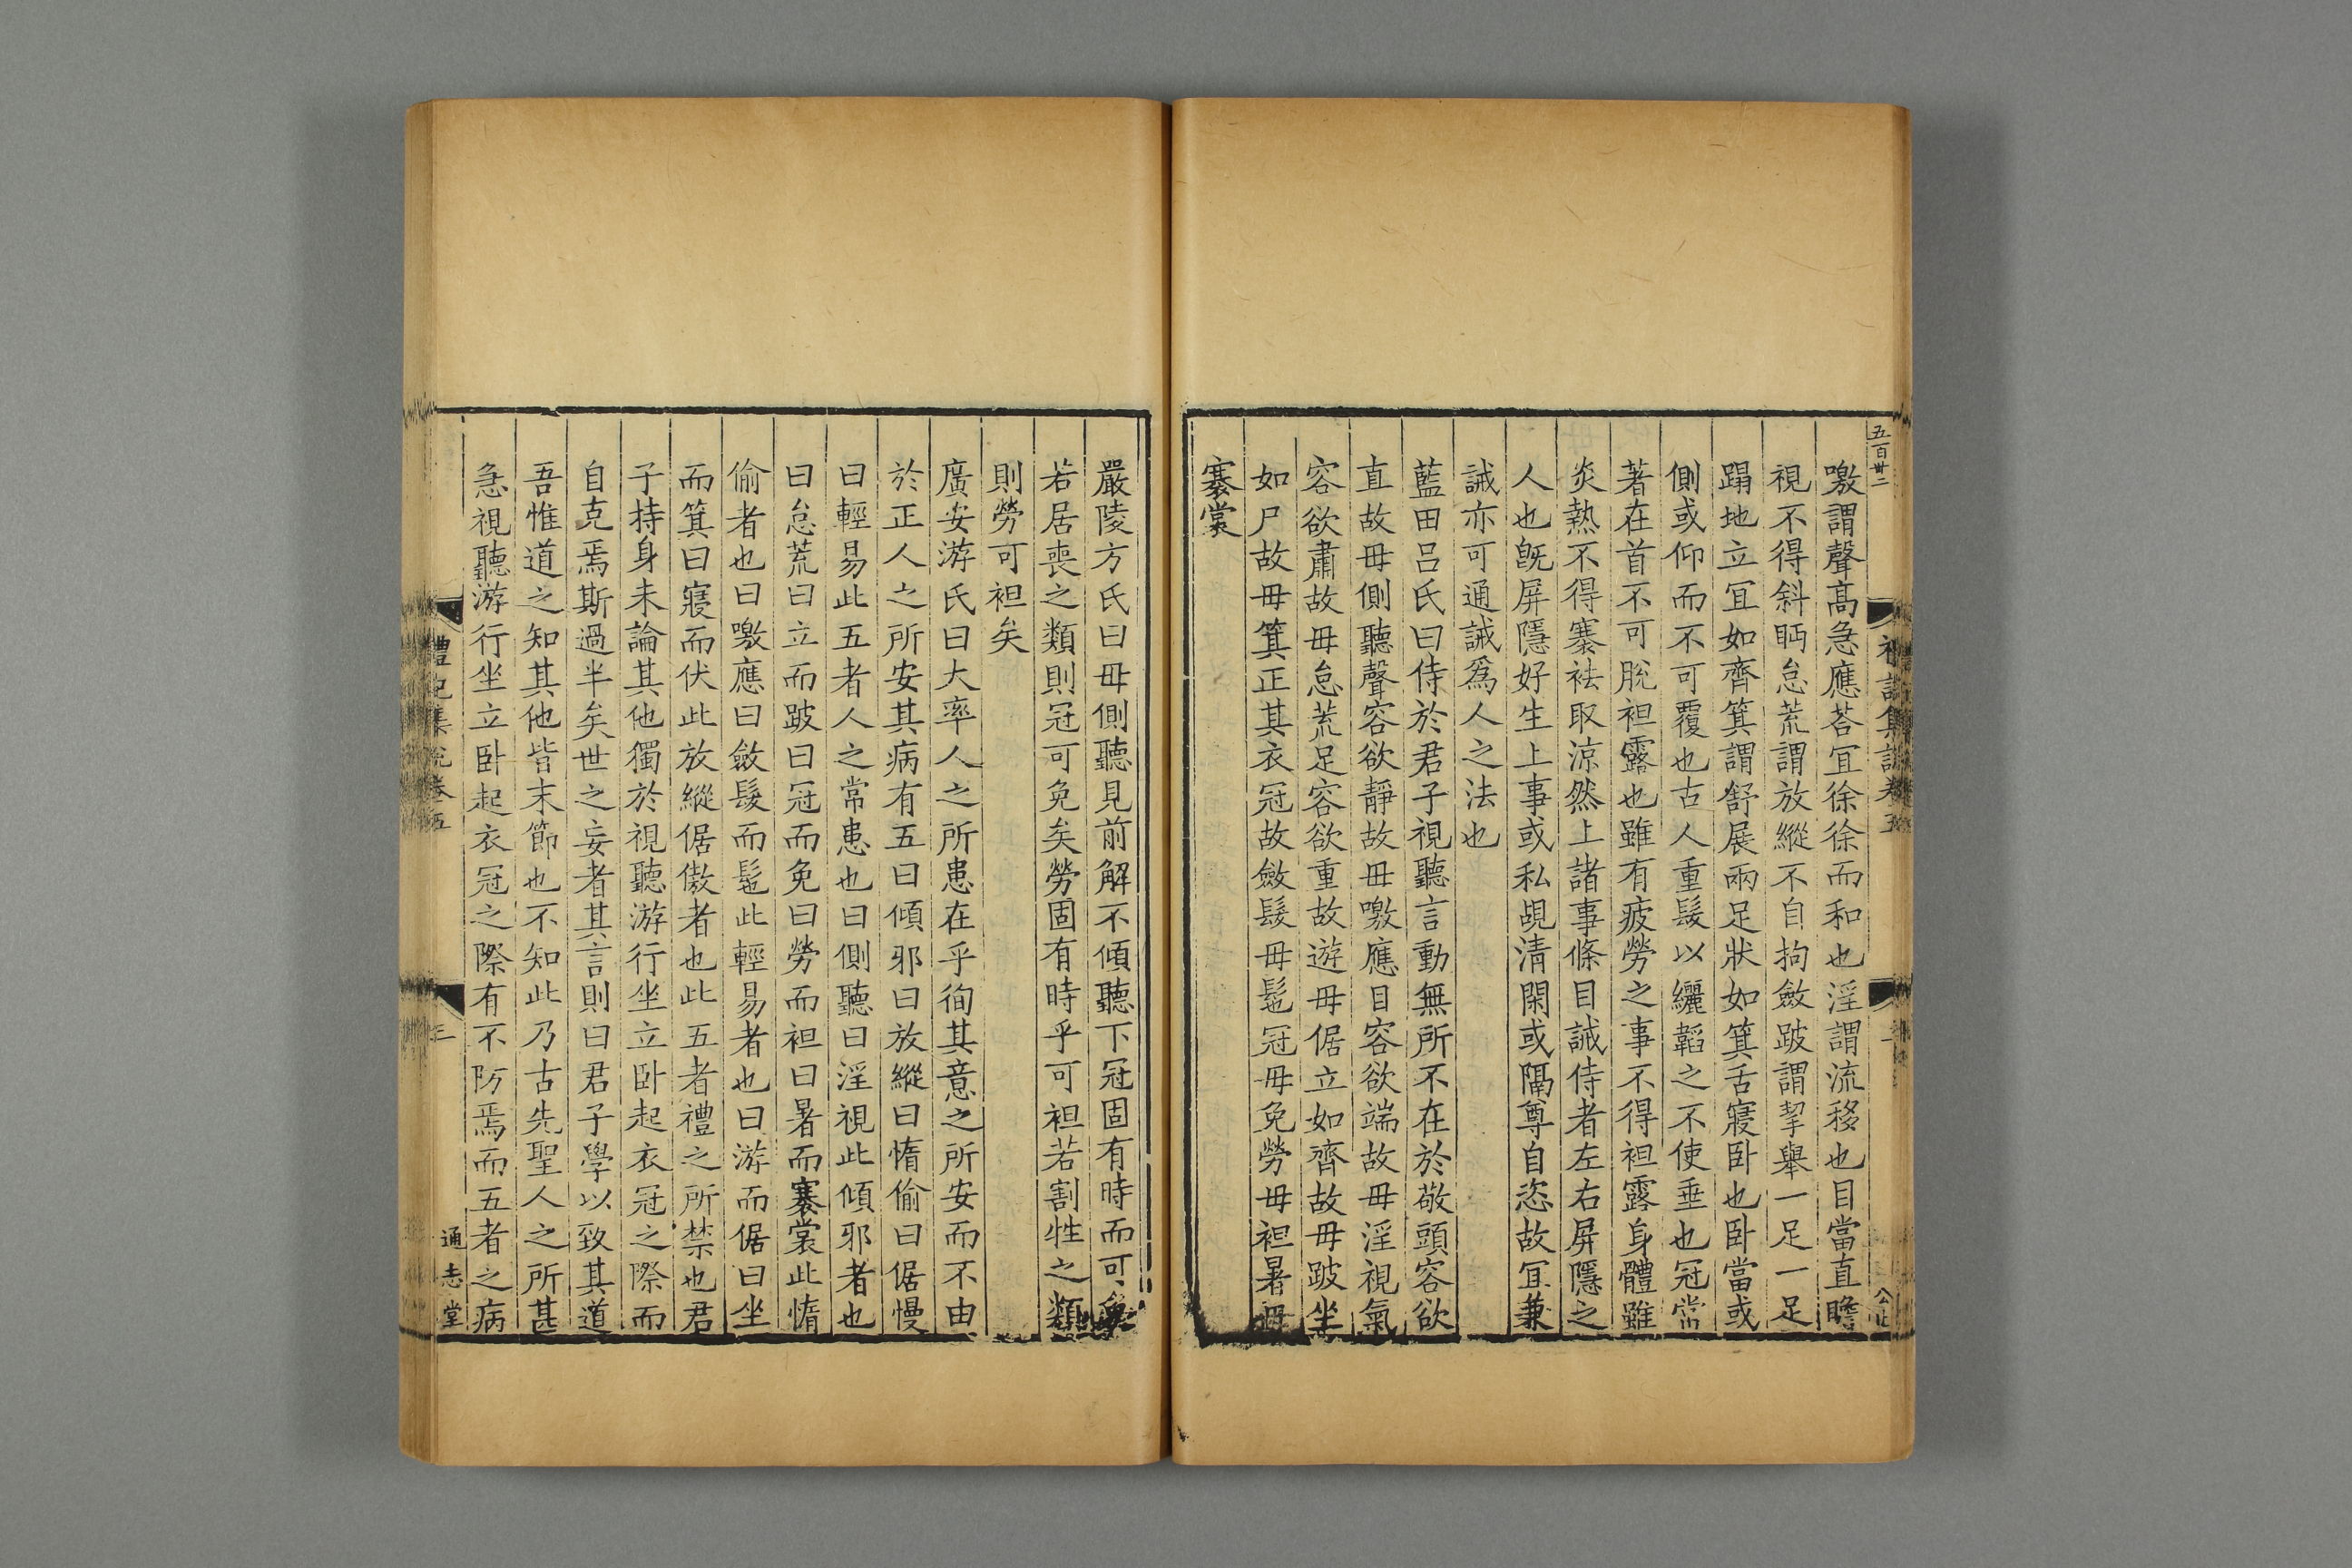 五百卅二
噭謂聲髙急應荅冝徐徐而和也淫謂流移也目當直瞻
視不得斜眄怠荒謂放縱不自拘斂跛謂挈舉一足一足
蹋地立冝如齊箕謂舒展兩足狀如箕舌寢卧也卧當或
側或仰而不可覆也古人重髲以纚韜之不使垂也冠常
著在首不可脫袒露也雖有疲勞之事不得袒露身體雖
炎熱不得褰袪取涼然上諸事條目誡侍者左右屏隱之
人也旣屏隱好生上事或私覘清閑或隔尊自恣故冝兼
誡亦可通誡爲人之法也
藍田呂氏曰侍於君子視聽言動無所不在於敬頭容欲
直故毋側聽聲容欲靜故毋噭應目容欲端故毋淫視氣
容欲肅故毋怠荒足容欲重故遊毋倨立如齊故毋跛坐
如尸故毋箕正其衣冠故斂髲毋髢冠毋免勞毋袒暑毋
褰裳
嚴陵方氏曰毋側聽見前解不傾聽下冠固有時而可免
若居喪之類則冠可免矣勞固有時乎可袒若割牲之類
則勞可袒矣
廣安游氏曰大率人之所患在乎徇其意之所安而不由
於正人之所安其病有五曰傾邪曰放縱曰惰偷曰倨慢
曰輕易此五者人之常患也曰側聽曰淫視此傾邪者也
曰怠荒曰立而跛曰冠而免曰勞而袒曰暑而褰裳此惰
偷者也曰噭應曰斂髲而髢此輕易者也曰游而倨曰坐
而箕曰寢而伏此放縱倨傲者也此五者禮之所禁也君
子持身未論其他獨於視聽游行坐立卧起衣冠之際而
自克焉斯過半矣世之妄者其言則曰君子學以致其道
吾惟道之知其他皆末節也不知此乃古先聖人之所甚
急視聽游行坐立卧起衣冠之際有不防焉而五者之病
禮記集說卷五
三
通志堂